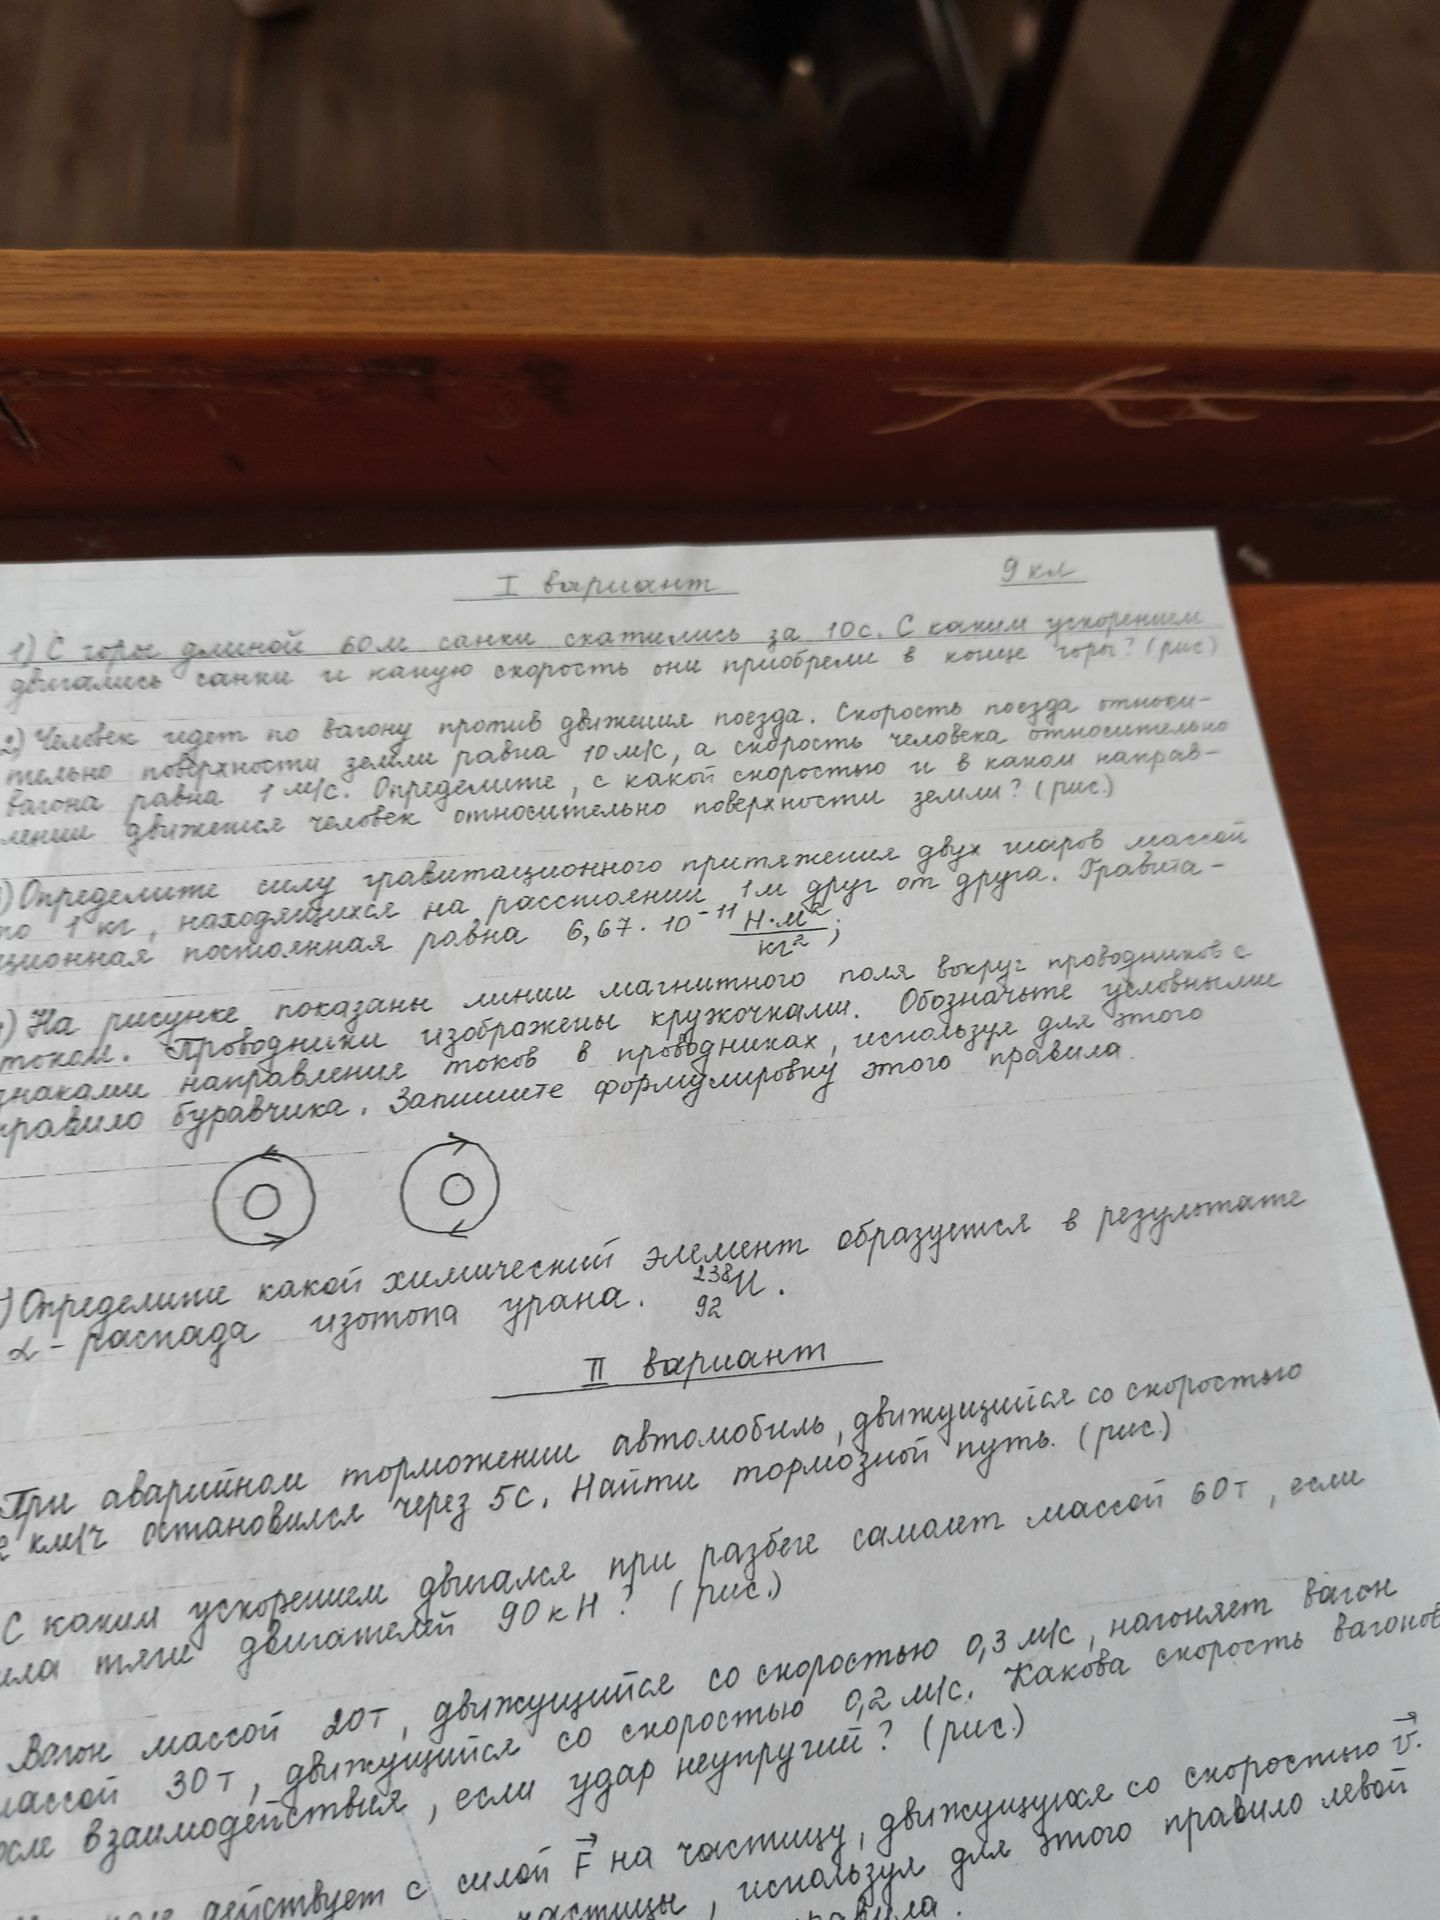 I вариант
9 кл
1) С горы длиной 60 м санки скатились за 10 с. С каким ускорением
двигались санки и какую скорость они приобрели в конце горы? (рис)
2) Человек идет по вагону против движения поезда. Скорость поезда относи-
тельно поверхности земли равна 10 м/с, а скорость человека относительно
вагона равна 1 м/с. Определите, с какой скоростью и в каком направ-
лении движется человек относительно поверхности земли? (рис.)
) Определите силу гравитационного притяжения двух шаров массой
по 1 кг, находящихся на расстоянии 1 м друг от друга. Гравита-
ционная постоянная равна 6,67 · 10⁻¹¹ Н·м²/кг²;
) На рисунке показаны линии магнитного поля вокруг проводников с
током. Проводники изображены кружочками. Обозначьте условными
знаками направления токов в проводниках, используя для этого
правило буравчика. Запишите формулировку этого правила.
) Определите какой химический элемент образуется в результате
α - распада изотопа урана. ²³⁸₉₂U.
II вариант
При аварийном торможении автомобиль, движущийся со скоростью
км/ч остановился через 5с. Найти тормозной путь. (рис.)
С каким ускорением двигался при разбеге самолет массой 60 т, если
сила тяги двигателей 90 кН? (рис.)
Вагон массой 20 т, движущийся со скоростью 0,3 м/с, нагоняет вагон
массой 30 т, движущийся со скоростью 0,2 м/с. Какова скорость вагонов
после взаимодействия, если удар неупругий? (рис.)
действует с силой F⃗ на частицу, движущуюся со скоростью v⃗.
частицы, используя для этого правило левой
правила.